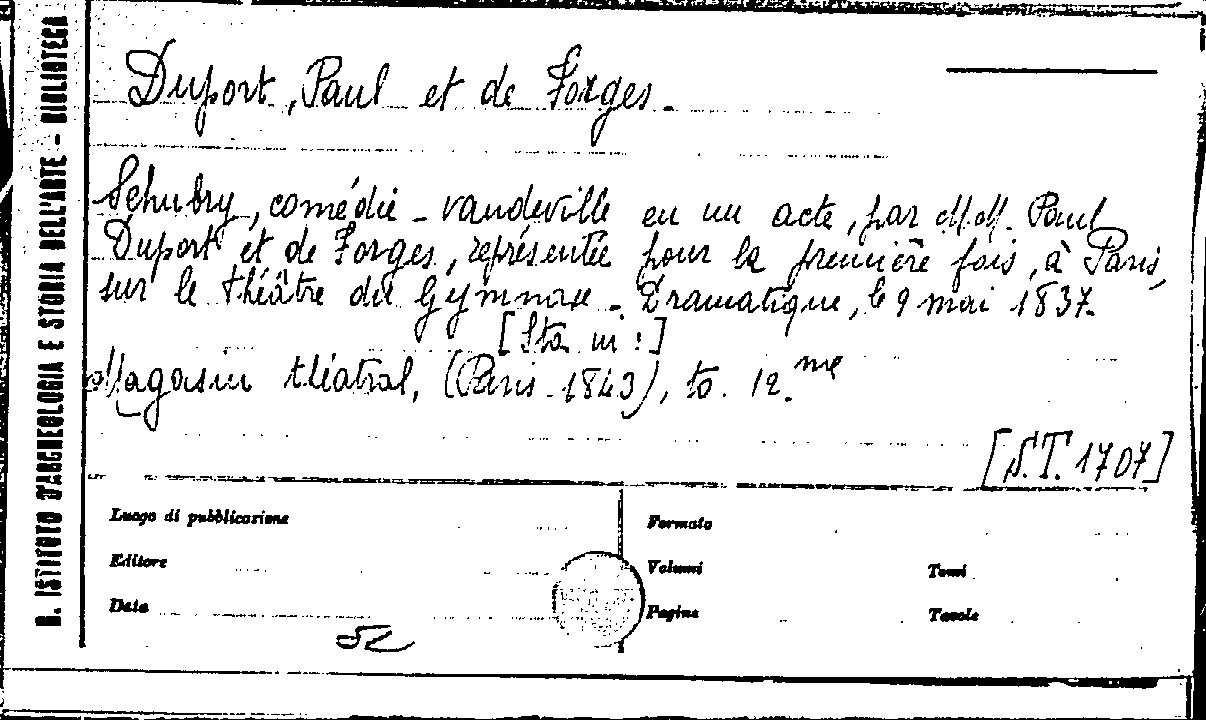 R. ISTITUTO D'ARCHEOLOGIA E STORIA DELL'ARTE - BIBLIOTECA
Duport, Paul et de Forges.
Schubry, comédie - vaudeville en un acte, par M.M. Paul
Duport et de Forges, représentée pour la première fois, à Paris,
sur le théâtre du Gymnase - Dramatique, le 9 mai 1837.
[Sta in:]
Magasin théatral, (Paris 1843), to. 12.me
[S.T. 1707]
Luogo di pubblicazione
Formato
Editore
Volumi
Tomi
Data
Pagine
Tavole